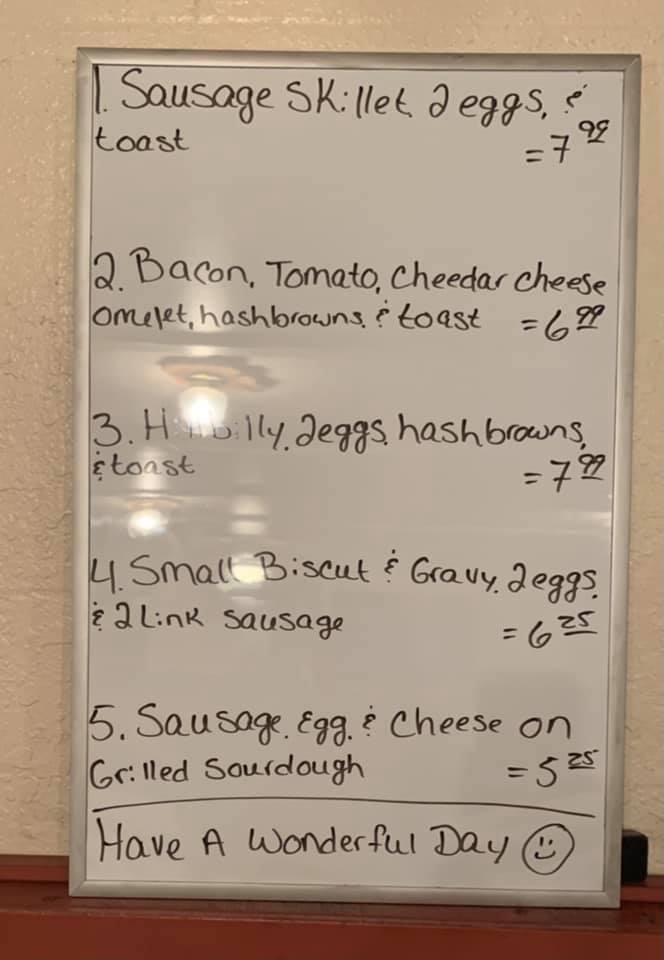 1. Sausage Skillet, 2 eggs, &
toast =7 99
2. Bacon, Tomato, Cheedar cheese
omelet, hashbrowns, & toast =6 99
3. Hillbilly, 2 eggs, hashbrowns,
& toast =7 99
4. Small Biscut & Gravy, 2 eggs,
& 2 Link sausage =6 25
5. Sausage, Egg, & Cheese on
Grilled Sourdough =5 25
Have A Wonderful Day